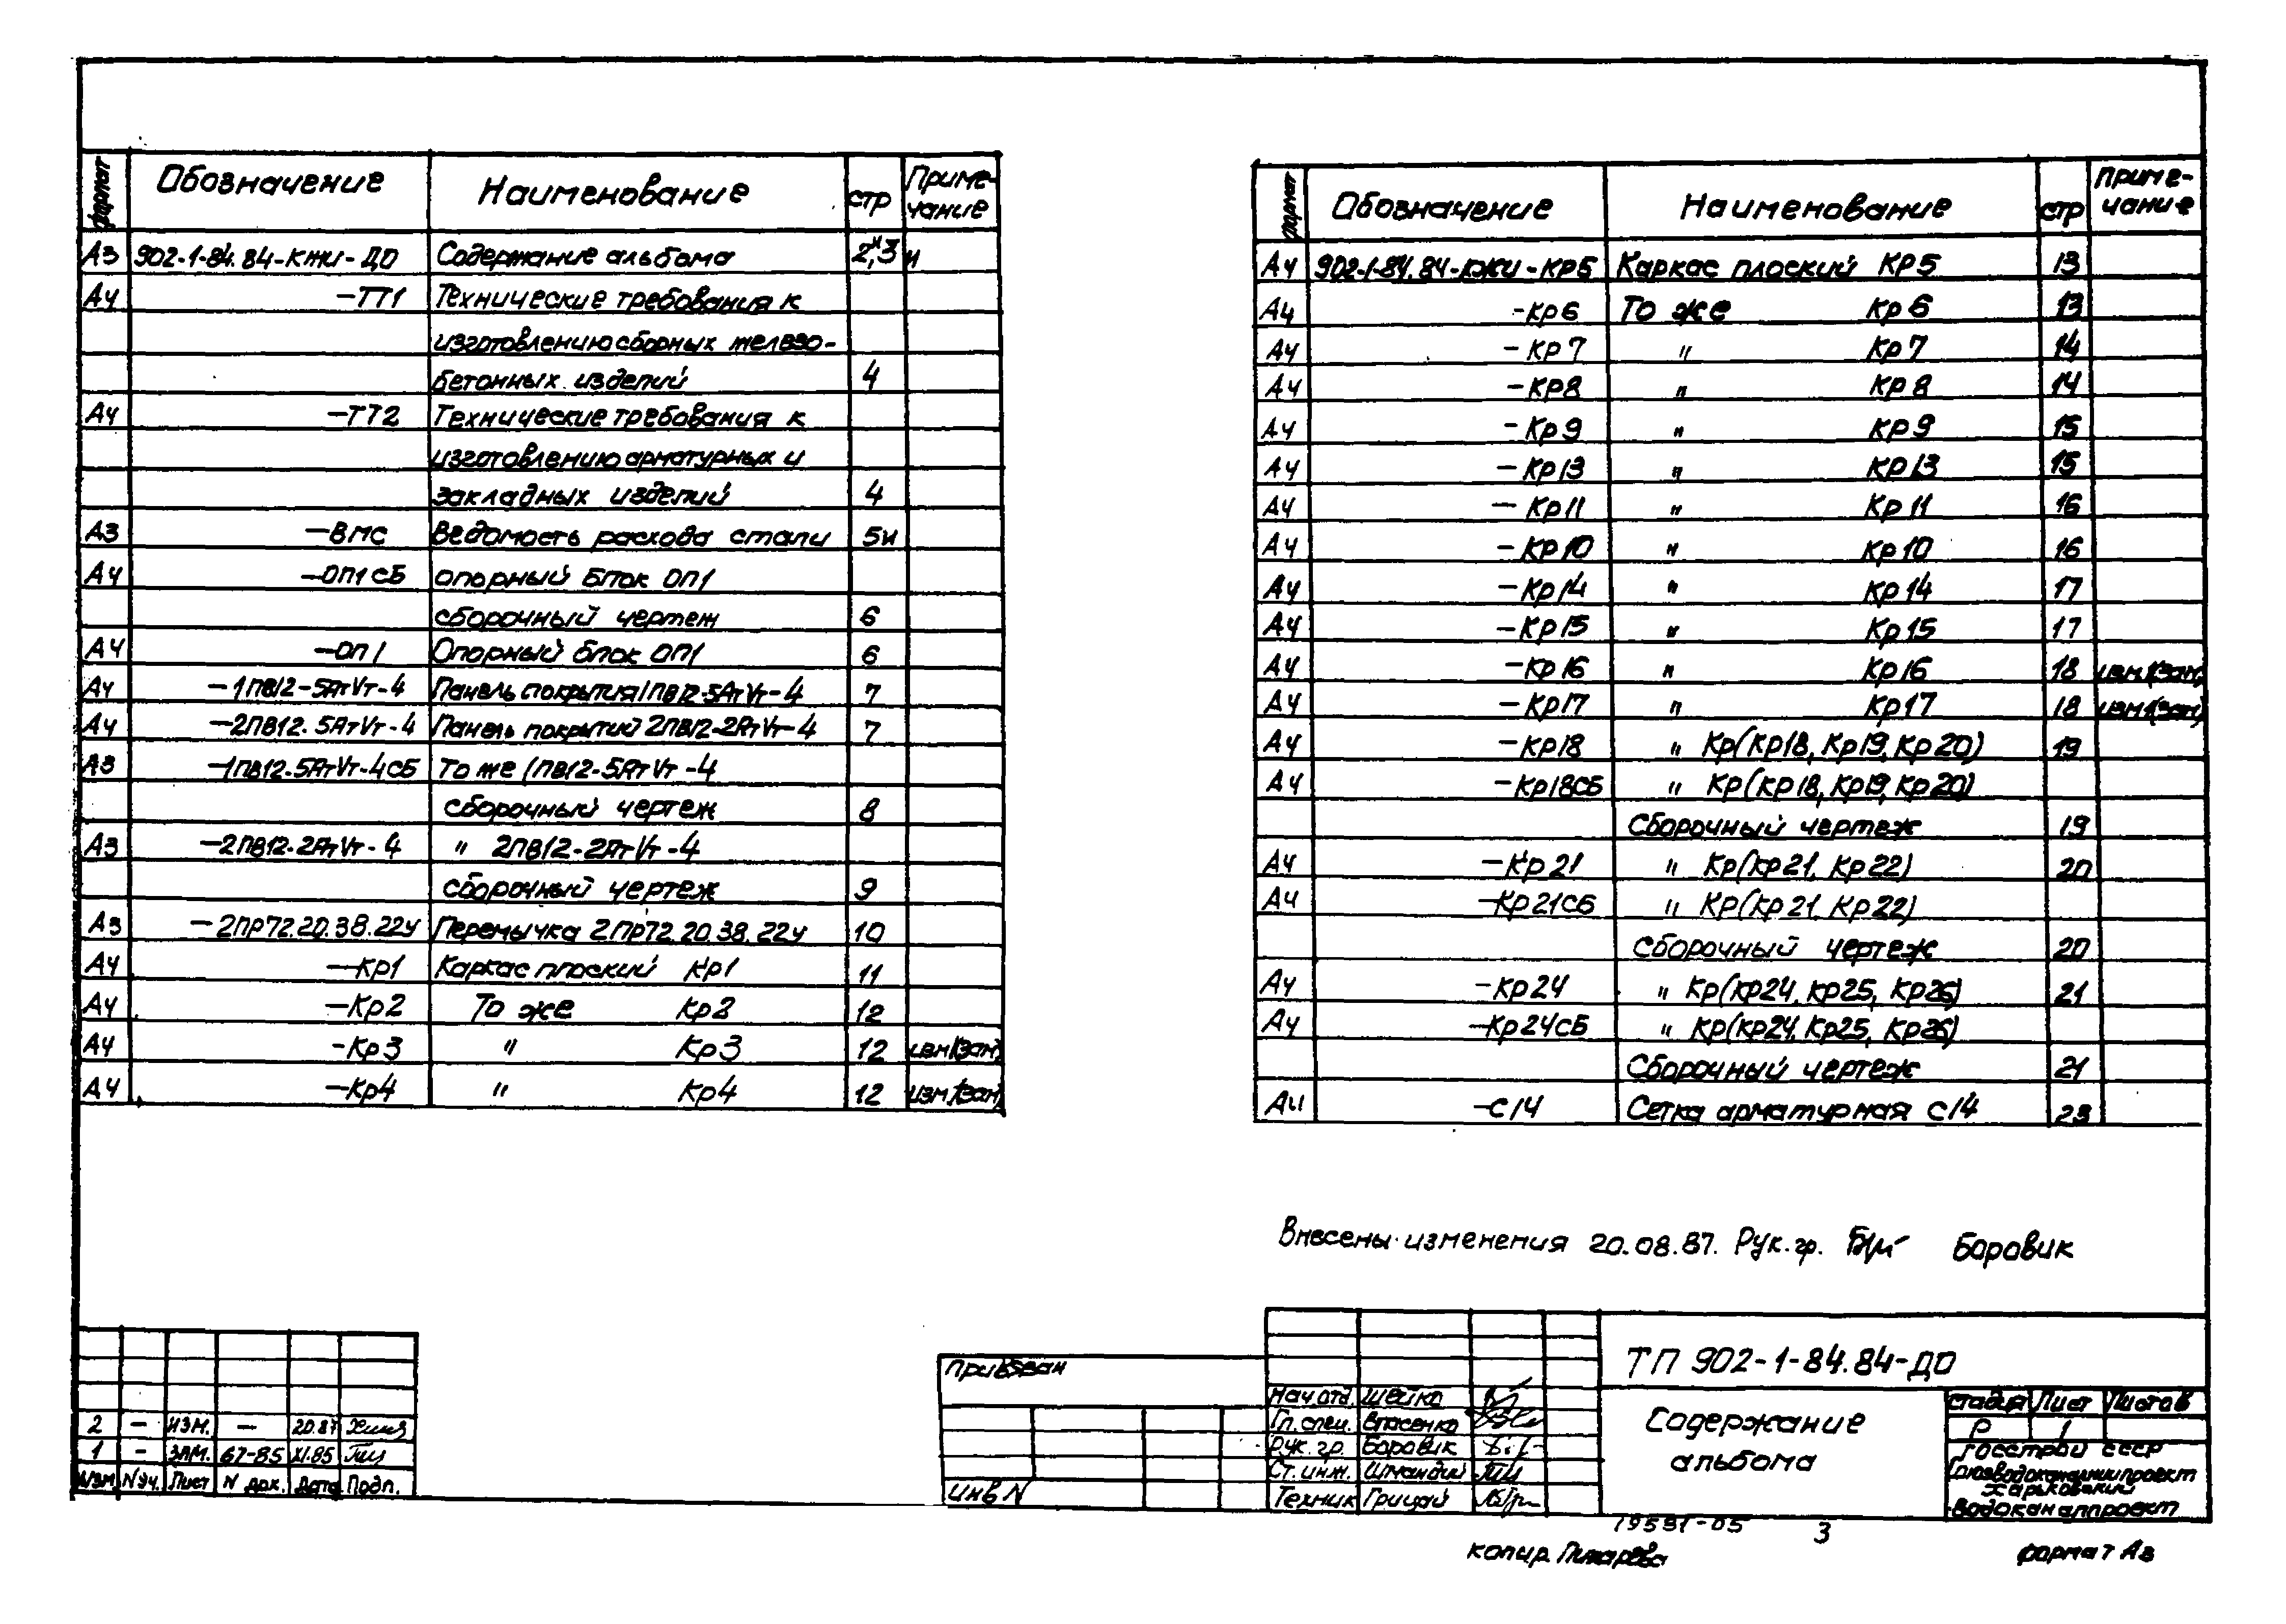 формат Обозначение Наименование стр Приме-чание
А3 902-1-84.84-КЖИ-ДО Содержание альбома 2и,3и
А4 -ТТ1 Технические требования к
изготовлению сборных железо-
бетонных изделий 4
А4 -ТТ2 Технические требования к
изготовлению арматурных и
закладных изделий 4
А3 -ВМС Ведомость расхода стали 5и
А4 -ОП1СБ Опорный блок ОП1
сборочный чертеж 6
А4 -ОП1 Опорный блок ОП1 6
А4 -1ПВ12-5АтVт-4 Панель покрытия 1ПВ12-5АтVт-4 7
А4 -2ПВ12.5АтVт-4 Панель покрытий 2ПВ12-2АтVт-4 7
А3 -1ПВ12-5АтVт-4СБ То же 1ПВ12-5АтVт-4
сборочный чертеж 8
А3 -2ПВ12-2АтVт-4 " 2ПВ12-2АтVт-4
сборочный чертеж 9
А3 -2ПР72.20.38.22у Перемычка 2ПР72.20.38.22у 10
А4 -Кр1 Каркас плоский Кр1 11
А4 -Кр2 То же Кр2 12
А4 -Кр3 " Кр3 12 изм1(зам)
А4 -Кр4 " Кр4 12 изм1(зам)
формат Обозначение Наименование стр Приме-чание
А4 902-1-84.84-КЖИ-КР5 Каркас плоский КР5 13
А4 -Кр6 То же Кр6 13
А4 -Кр7 " Кр7 14
А4 -КР8 " КР8 14
А4 -Кр9 " КР9 15
А4 -Кр13 " КР13 15
А4 -Кр11 " Кр11 16
А4 -КР10 " Кр10 16
А4 -Кр14 " Кр14 17
А4 -Кр15 " Кр15 17
А4 -Кр16 " Кр16 18 изм1(зам)
А4 -Кр17 " Кр17 18 изм1(зам)
А4 -Кр18 " Кр(Кр18, Кр19, Кр20) 19
А4 -Кр18СБ " Кр(Кр18, Кр19, Кр20)
Сборочный чертеж 19
А4 -Кр21 " Кр(Кр21, Кр22) 20
А4 -Кр21СБ " Кр(Кр21, Кр22)
Сборочный чертеж 20
А4 -Кр24 " Кр(Кр24, Кр25, Кр26) 21
А4 -Кр24СБ " Кр(Кр24, Кр25, Кр26)
Сборочный чертеж 21
А4 -С14 Сетка арматурная С14 23
Внесены изменения 20.08.87. Рук.гр. Боровик
2 - ИЗМ. - 20.87
1 - ЗАМ. 67-85 XI.85
Изм N уч. Лист N док. Дата Подп.
Привязан
Инв N
Нач.отд. Шейко
Гл.спец. Власенко
Рук.гр. Боровик
Ст.инж. Шмандий
Техник Грицай
ТП 902-1-84.84-ДО
Содержание
альбома
Стадия Лист Листов
Р 1
Госстрой СССР
Союзводоканалниипроект
Харьковский
Водоканалпроект
19531-05 3
копир. формат А3